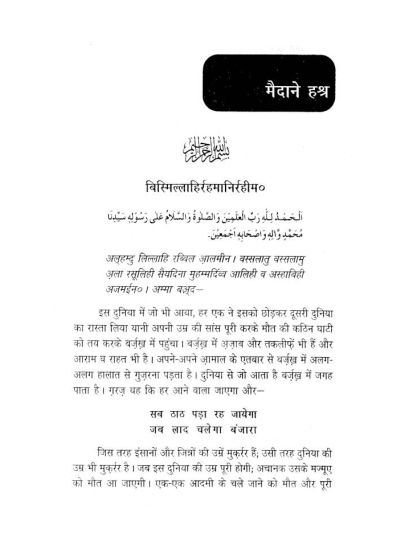 मैदाने हश्र
بسم الله الرحمن الرحيم
बिस्मिल्लाहिर्रहमानिर्रहीम०
اَلْحَمْدُ لِلّٰهِ رَبِّ الْعٰلَمِيْنَ وَالصَّلٰوةُ وَالسَّلَامُ عَلٰى رَسُوْلِهٖ سَيِّدِنَا
مُحَمَّدٍ وَّاٰلِهٖ وَاَصْحَابِهٖ اَجْمَعِيْنَ۔
अल्हम्दु लिल्लाहि रब्बिल आ़लमीन। वस्सलातु वस्सलामु
अ़ला रसूलिही सैयदिना मुहम्मदिंव्व आलिही व अस्हाबिही
अजमईन०। अम्मा बअ़्द—
इस दुनिया में जो भी आया, हर एक ने इसको छोड़कर दूसरी दुनिया
का रास्ता लिया यानी अपनी उम्र की सांस पूरी करके मौत की कठिन घाटी
को तय करके बर्ज़ख़ में पहुंचा। बर्ज़ख़ में अ़ज़ाब और तकलीफ़ें भी हैं और
आराम व राहत भी है। अपने-अपने आ़माल के एतबार से बर्ज़ख़ में अलग-
अलग हालात से गुज़रना पड़ता है। दुनिया से जो आता है बर्ज़ख़ में जगह
पाता है। ग़रज़ यह कि हर आने वाला जाएगा और—
सब ठाठ पड़ा रह जायेगा
जब लाद चलेगा बंजारा
जिस तरह इंसानों और जिन्नों की उम्रें मुक़र्रर हैं; उसी तरह दुनिया की
उम्र भी मुक़र्रर है। जब इस दुनिया की उम्र पूरी होगी; अचानक उसके मज्मूए
को मौत आ जाएगी। एक-एक आदमी के चले जाने को मौत और पूरी